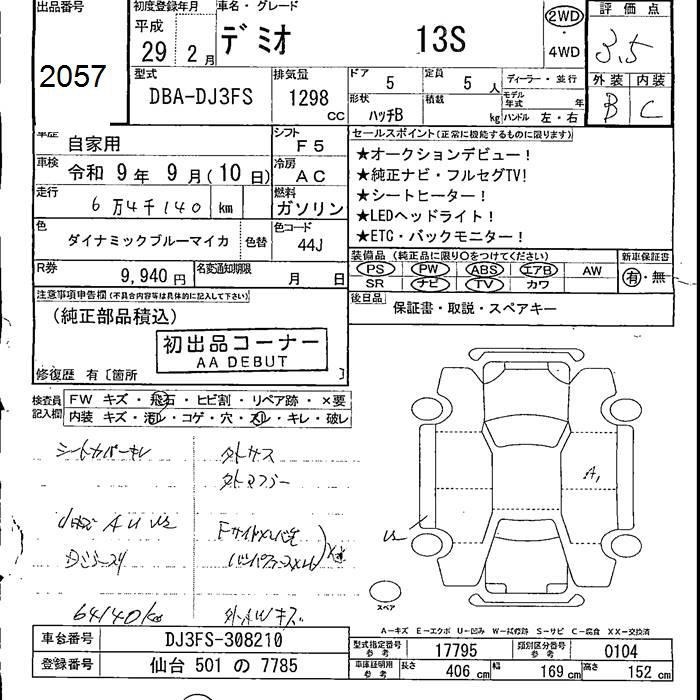 出品番号 初度登録年月 車名・グレード 評価点
2057 平成 29年 2月 デミオ 13S 2WD・4WD 3.5
外装 内装
B C
型式 DBA-DJ3FS 排気量 1298cc ドア 5 定員 5人 ディーラー・並行
形状 ハッチB 積載 kg モデル年式 年 ハンドル 左・右
車歴 自家用 シフト F5
車検 令和9年9月(10日) 冷房 AC
走行 6万4千140 km 燃料 ガソリン
色 ダイナミックブルーマイカ 色替 色コード 44J
R券 9,940円 名変通知期限 月 日
セールスポイント(正常に機能するものに限ります)
★オークションデビュー！
★純正ナビ・フルセグTV!
★シートヒーター！
★LEDヘッドライト！
★ETC・バックモニター！
装備品 (純正品に限り○をつけてください) 新車保証書
PS PW ABS エアB AW 有・無
SR ナビ TV カワ
後日品 保証書・取説・スペアキー
注意事項申告欄(不具合内容等は具体的に記入して下さい)
(純正部品積込)
初出品コーナー
AA DEBUT
修復歴 有〔箇所 〕
検査員記入欄 FW キズ・飛石・ヒビ割・リペア跡・×要
内装 キズ・汚レ・コゲ・穴・スレ・キレ・破レ
シートカバーキレ 外トサス
外トマフラー
AU US
64140km
A1
US
スペア
A－キズ E－エクボ U－凹み W－補修跡 S－サビ C－腐食 XX－交換済
車台番号 DJ3FS-308210 型式指定番号 参考 17795 類別区分番号 参考 0104
登録番号 仙台 501 の 7785 車庫証明用 参考 長さ 406 cm 幅 169 cm 高さ 152 cm